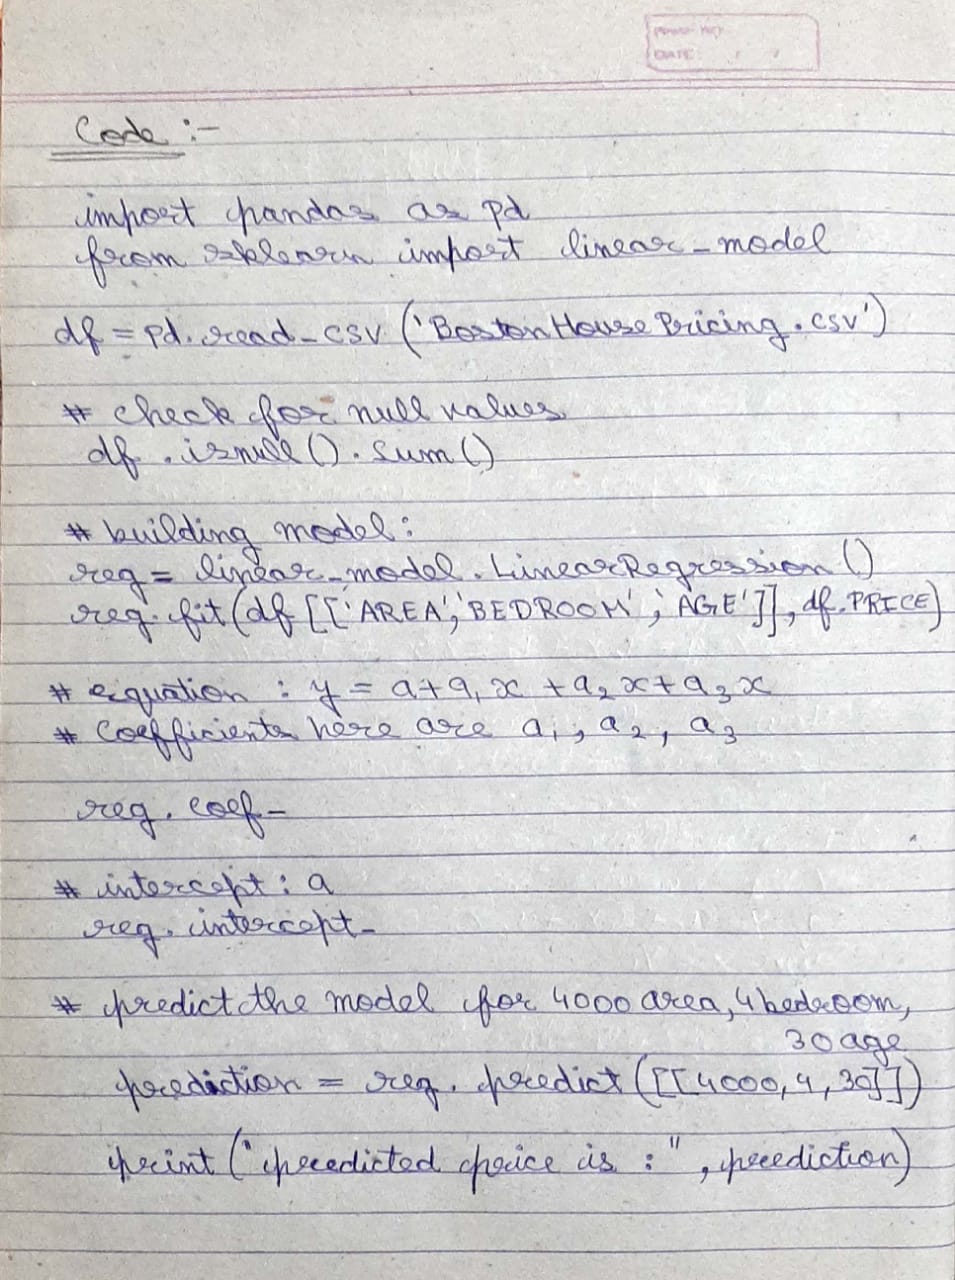 DATE: / /
Code :-
import pandas as pd
from sklearn import linear_model
df = pd.read_csv ('BostonHousePricing.csv')
# check for null values
df . isnull () . sum ()
# building model :
reg = linear_model . LinearRegression ()
reg . fit (df [['AREA', 'BEDROOM', 'AGE']], df.PRICE)
# equation : y = a + a₁ x + a₂ x + a₃ x
# Coefficients here are a₁, a₂, a₃
reg . coef_
# intercept : a
reg . intercept_
# predict the model for 4000 area, 4 bedroom,
30 age
prediction = reg . predict ([[4000, 4, 30]])
print ("predicted price is : ", preediction)